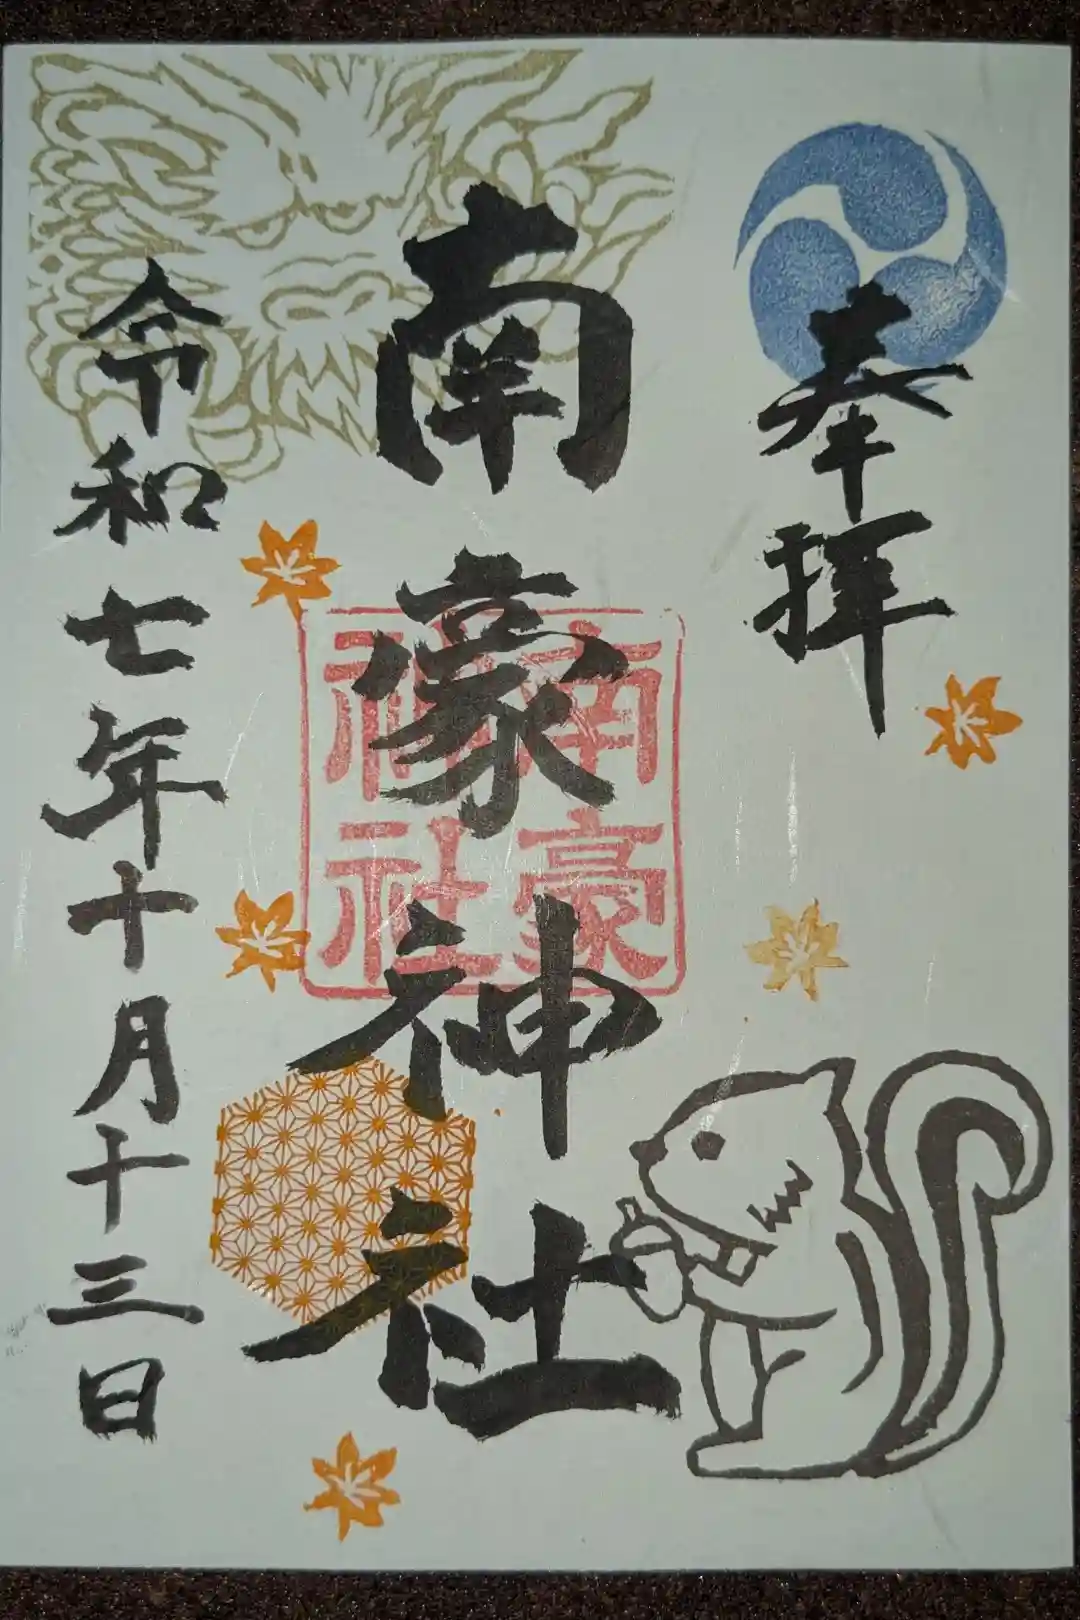 奉拝
南豪神社
南豪
神社
令和七年十月十三日